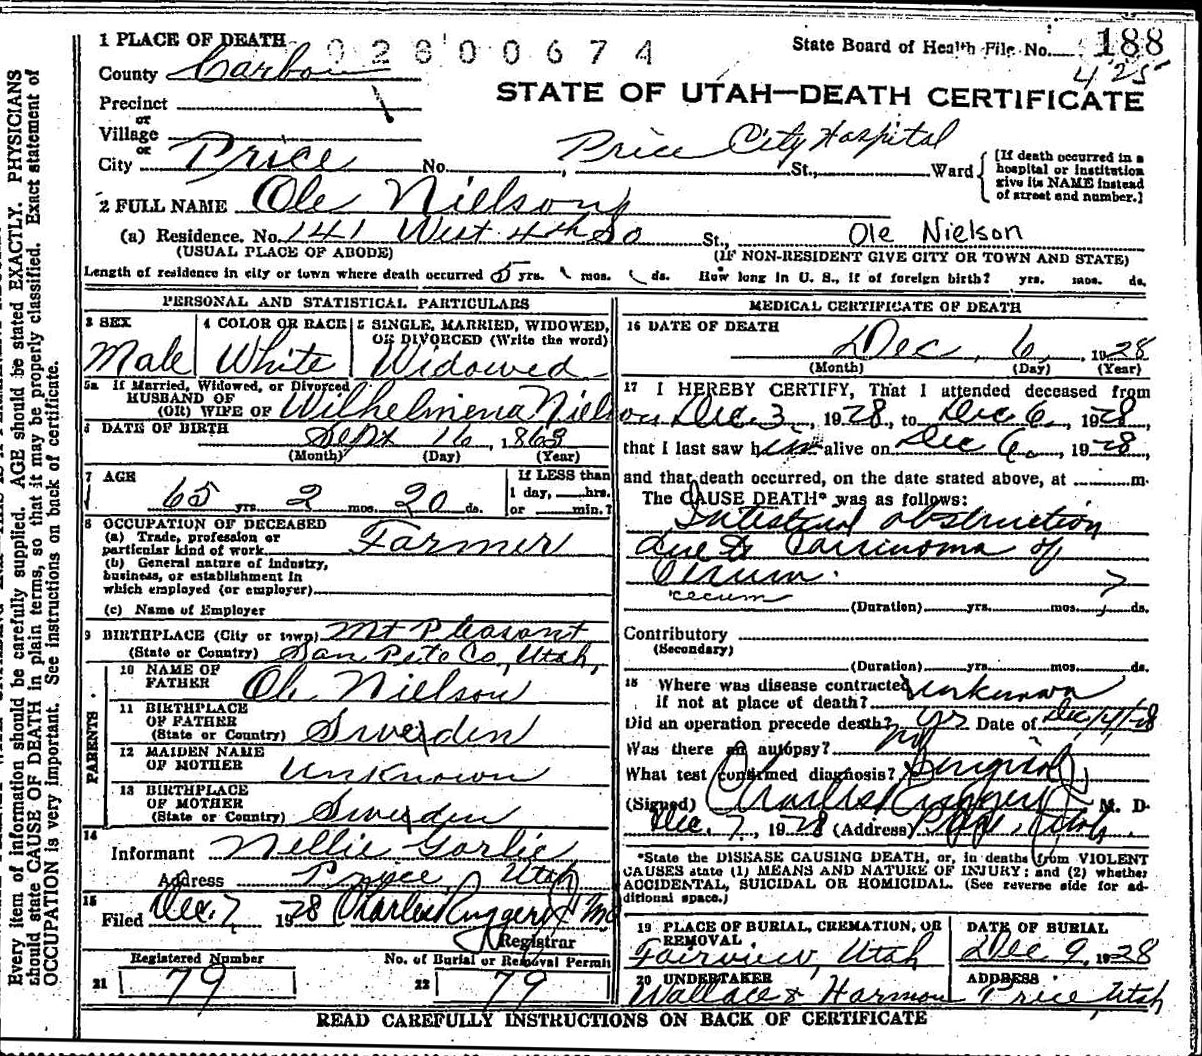 1 PLACE OF DEATH 02800674 State Board of Health File No. 188
County Carbon 425
STATE OF UTAH—DEATH CERTIFICATE
Precinct
or
Village
or
City Price No. Price City Hospital St., Ward
[If death occurred in a
hospital or institution
give its NAME instead
of street and number.]
2 FULL NAME Ole Nielson
(a) Residence. No. 141 West 4th So St., Ole Nielson
(USUAL PLACE OF ABODE) (IF NON-RESIDENT GIVE CITY OR TOWN AND STATE)
Length of residence in city or town where death occurred 5 yrs. mos. ds. How long in U. S., if of foreign birth? yrs. mos. ds.
PERSONAL AND STATISTICAL PARTICULARS
3 SEX
Male
4 COLOR OR RACE
White
5 SINGLE, MARRIED, WIDOWED,
OR DIVORCED (Write the word)
Widowed
5a If Married, Widowed, or Divorced
HUSBAND OF
(OR) WIFE OF Wilhelmena Nielson
6 DATE OF BIRTH Sept 16, 1863
(Month) (Day) (Year)
7 AGE
65 yrs. 2 mos. 20 ds.
If LESS than
1 day, hrs.
or min.?
8 OCCUPATION OF DECEASED
(a) Trade, profession or
particular kind of work Farmer
(b) General nature of industry,
business, or establishment in
which employed (or employer)
(c) Name of Employer
9 BIRTHPLACE (City or town) Mt Pleasant
(State or Country) San Pete Co, Utah,
PARENTS
10 NAME OF
FATHER Ole Nielson
11 BIRTHPLACE
OF FATHER
(State or Country) Sweden
12 MAIDEN NAME
OF MOTHER Unknown
13 BIRTHPLACE
OF MOTHER
(State or Country) Sweden
14
Informant Nellie Gorlie
Address Price, Utah
15
Filed Dec. 7, 1928 Charles Ruggeri MD
Registrar
Registered Number
21 79
No. of Burial or Removal Permit
22 79
MEDICAL CERTIFICATE OF DEATH
16 DATE OF DEATH
Dec, 6, 1928
(Month) (Day) (Year)
17 I HEREBY CERTIFY, That I attended deceased from
Dec. 3, 1928, to Dec 6, 1928,
that I last saw him alive on Dec 6, 1928,
and that death occurred, on the date stated above, at m.
The CAUSE DEATH* was as follows:
Intestinal obstruction
due to Carcinoma of
Cecum.
cecum
(Duration) yrs. mos. ds.
Contributory
(Secondary)
(Duration) yrs. mos. ds.
18 Where was disease contracted
if not at place of death? unknown
Did an operation precede death? yes Date of Dec/4/28
Was there an autopsy? no
What test confirmed diagnosis? Surgical
(Signed) Charles Ruggeri, M. D.
Dec. 7, 1928 (Address) Price, Utah.
*State the DISEASE CAUSING DEATH, or, in deaths from VIOLENT
CAUSES state (1) MEANS AND NATURE OF INJURY; and (2) whether
ACCIDENTAL, SUICIDAL OR HOMICIDAL. (See reverse side for ad-
ditional space.)
19 PLACE OF BURIAL, CREMATION, OR
REMOVAL
Fairview, Utah
DATE OF BURIAL
Dec 9, 1928
20 UNDERTAKER
Wallace & Harmon
ADDRESS
Price, Utah
READ CAREFULLY INSTRUCTIONS ON BACK OF CERTIFICATE
Every item of information should be carefully supplied. AGE should be stated EXACTLY. PHYSICIANS
should state CAUSE OF DEATH in plain terms, so that it may be properly classified. Exact statement of
OCCUPATION is very important. See instructions on back of certificate.